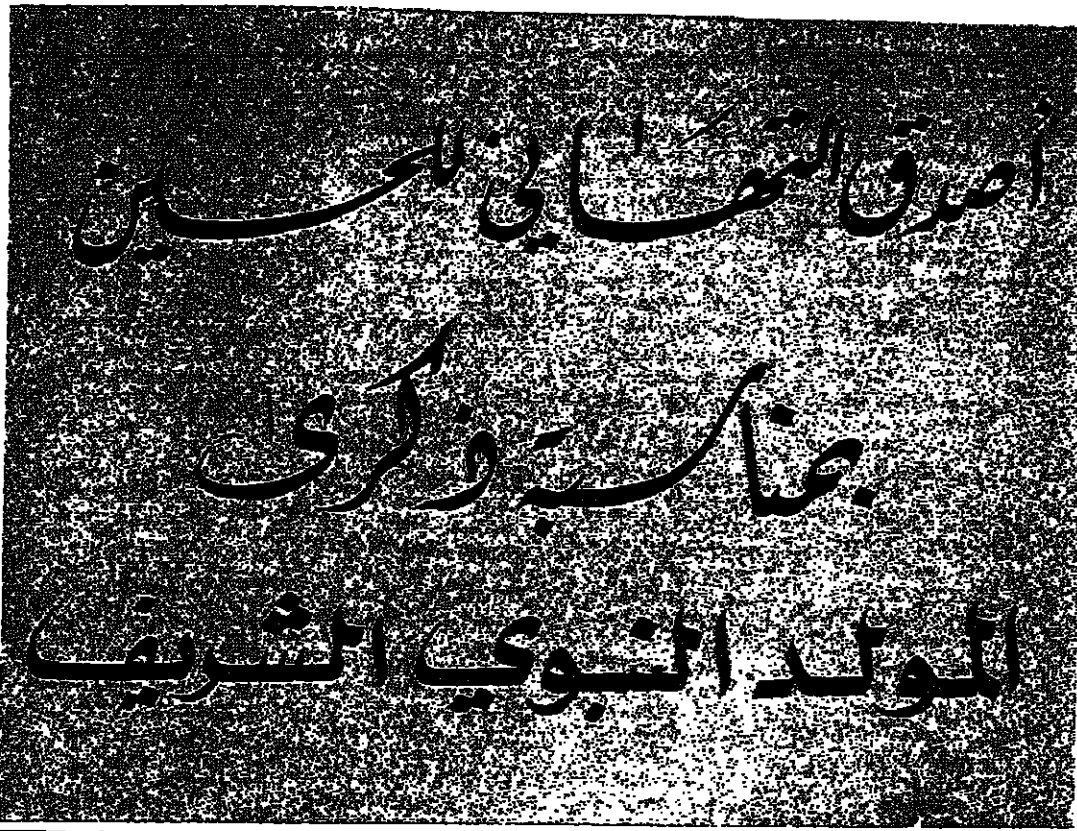 أصدق التهاني للحسين
بمناسبة ذكرى
المولد النبوي الشريف